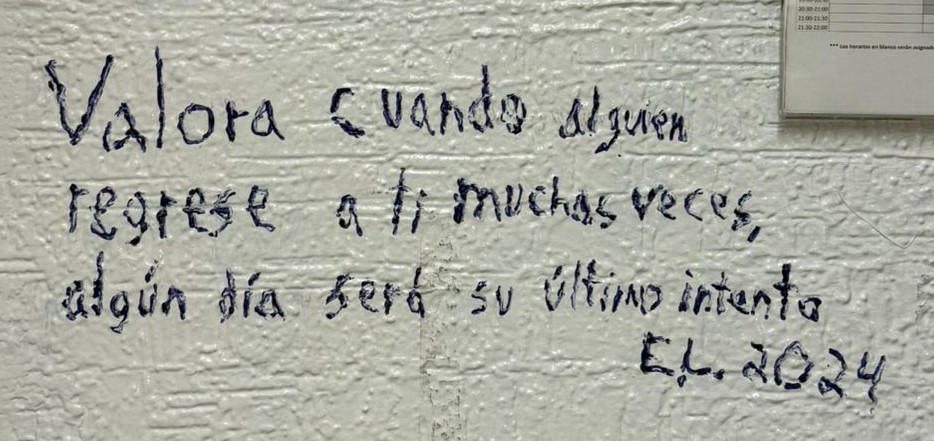 20:30-21:00
21:00-21:30
21:30-22:00
*** Los horarios en blanco serán
Valora cuando alguien
regrese a ti muchas veces,
algún día será su último intento
E.L. 2024